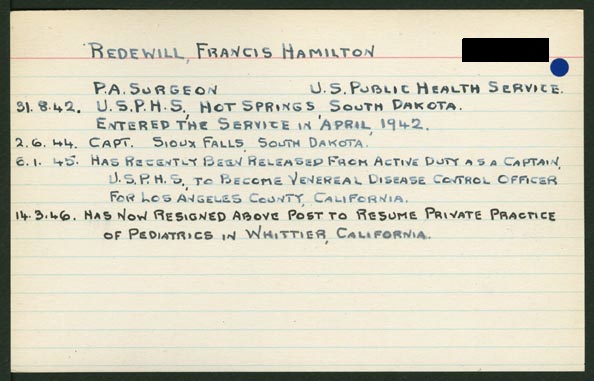 REDEWILL, FRANCIS HAMILTON
P.A. SURGEON U.S. PUBLIC HEALTH SERVICE.
31.8.42. U.S.P.H.S., HOT SPRINGS, SOUTH DAKOTA.
ENTERED THE SERVICE IN APRIL, 1942.
2.6.44. CAPT. SIOUX FALLS, SOUTH DAKOTA.
6.1.45. HAS RECENTLY BEEN RELEASED FROM ACTIVE DUTY AS A CAPTAIN,
U.S.P.H.S., TO BECOME VENEREAL DISEASE CONTROL OFFICER
FOR LOS ANGELES COUNTY, CALIFORNIA.
14.3.46. HAS NOW RESIGNED ABOVE POST TO RESUME PRIVATE PRACTICE
OF PEDIATRICS IN WHITTIER, CALIFORNIA.